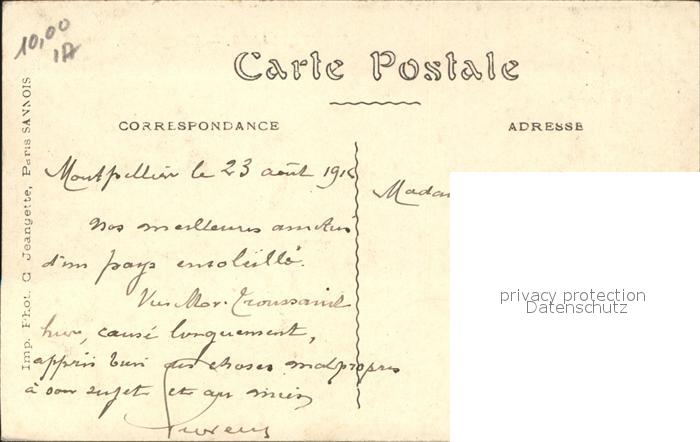 10,00
1A
Carte Postale
CORRESPONDANCE
ADRESSE
Imp. Phot. C. Jeangette, Paris SANNOIS
Montpellier le 23 août 191
Nos meilleures amitiés
d'un pays ensoleillé.
Vu Troussaint
hier, causé longuement,
appris bien des choses malpropres
à son sujet et au mien
Mada
privacy protection
Datenschutz